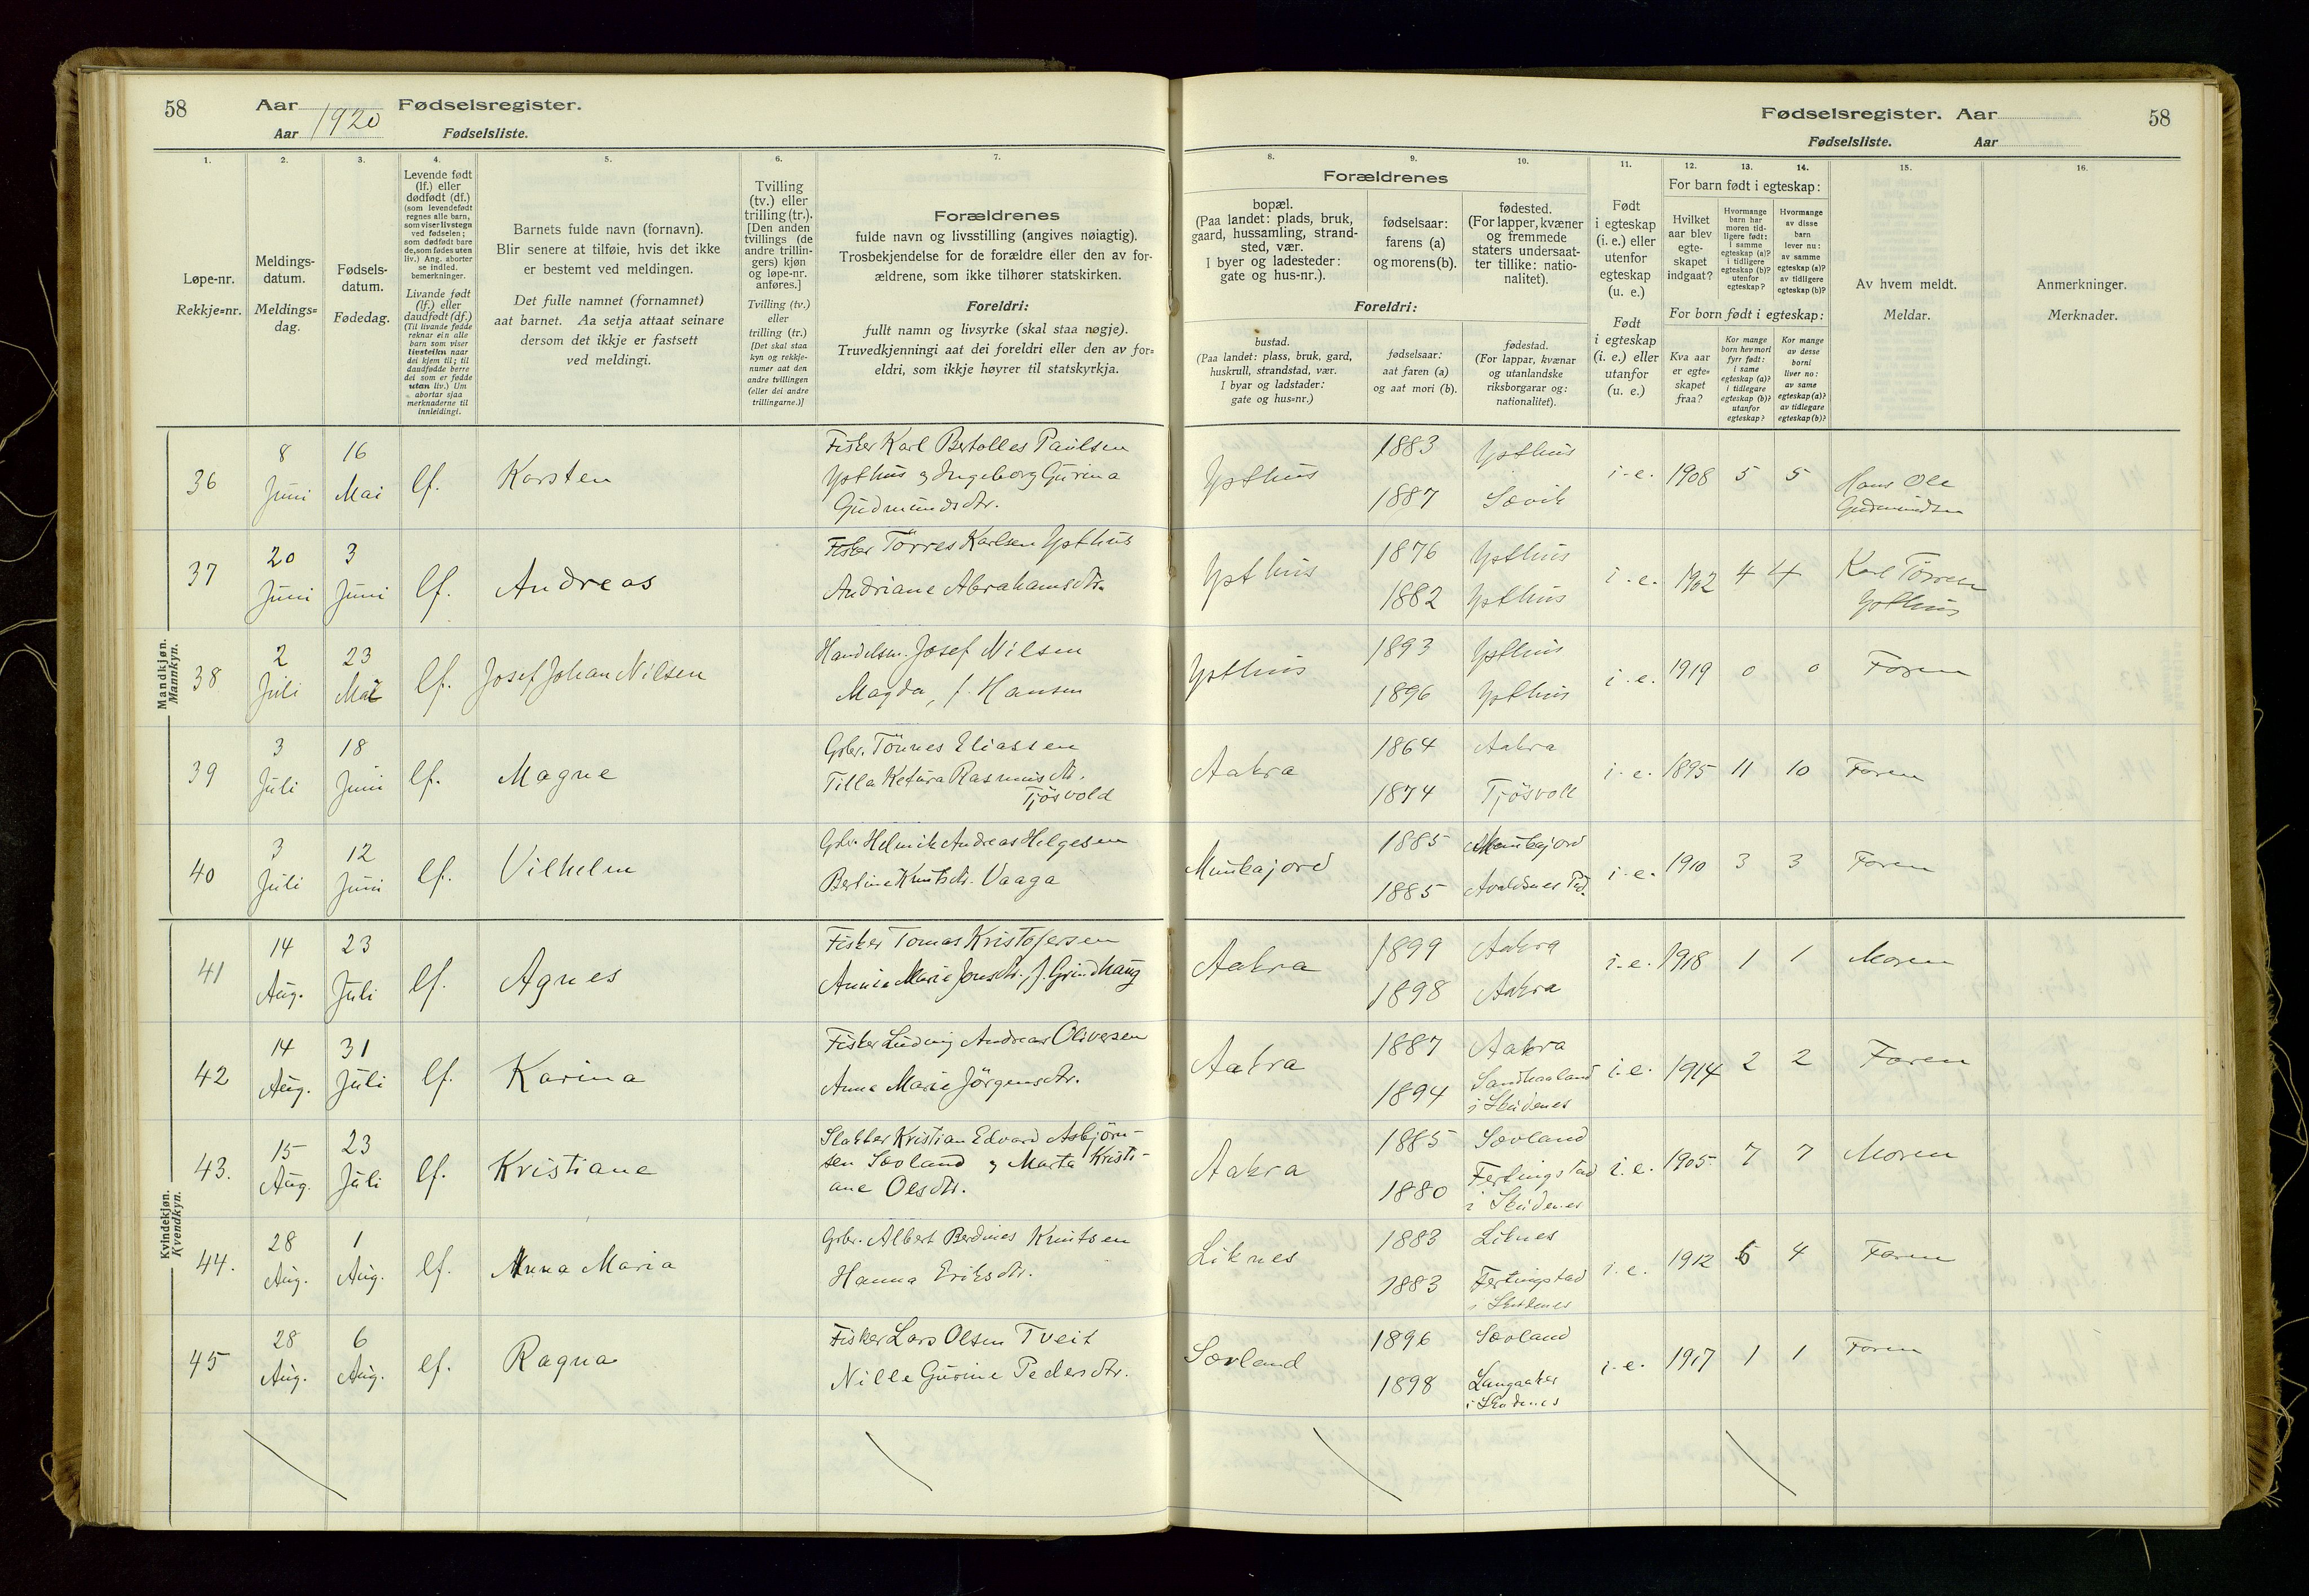 58
Aar 1920 Fødselsregister.
Aar Fødselsliste.
1.
2.
3.
4.
5.
6.
7.
Løpe-nr.
Rekkje=nr.
Meldings-
datum.
Meldings=
dag.
Fødsels-
datum.
Fødedag.
Levende født
(lf.) eller
dødfødt (df.)
(som levendefødt
regnes alle barn,
som viser livstegn
ved fødselen;
som dødfødt bare
de, som fødes uten
liv.) Ang. aborter
se indled.
bemerkninger.
Livande født
(lf.) eller
daudfødt (df.)
(Til livande fødde
reknar ein alle
barn som viser
livsteikn naar
dei kjem til; til
daudfødde berre
dei som er fødde
utan liv.) Um
abortar sjaa
merknaderne til
innleidingi.
Barnets fulde navn (fornavn).
Blir senere at tilføie, hvis det ikke
er bestemt ved meldingen.
Det fulle namnet (fornamnet)
aat barnet. Aa setja attaat seinare
dersom det ikkje er fastsett
ved meldingi.
Tvilling
(tv.) eller
trilling (tr.).
[Den anden
tvillings (de
andre trillin-
gers) kjøn
og løpe-nr.
anføres.]
Tvilling (tv.)
eller
trilling (tr.)
[Det skal staa
kyn og rekkje-
numer aat den
andre tvillingen
(eller dei andre
trillingarne.)]
Forældrenes
fulde navn og livsstilling (angives nøiagtig).
Trosbekjendelse for de forældre eller den av for-
ældrene, som ikke tilhører statskirken.
Foreldri:
fullt namn og livsyrke (skal staa nøgje).
Truvedkjenningi aat dei foreldri eller den av for=
eldri, som ikkje høyrer til statskyrkja.
Fødselsregister. Aar
58
Fødselsliste. Aar
8.
9.
10.
11.
12.
13.
14.
15.
16.
Forældrenes
bopæl.
(Paa landet: plads, bruk,
gaard, hussamling, strand-
sted, vær.
I byer og ladesteder:
gate og hus-nr.).
fødselsaar:
farens (a)
og morens (b).
fødested.
(For lapper, kvæner
og fremmede
staters undersaat-
ter tillike: natio-
nalitet).
Foreldri:
bustad.
(Paa landet: plass, bruk, gard,
huskrull, strandstad, vær.
I byar og ladstader:
gate og hus=nr.)
fødselsaar:
aat faren (a)
og aat mori (b).
fødestad.
(For lappar, kvænar
og utanlandske
riksborgarar og:
nationalitet).
Født
i egteskap
(i. e.) eller
utenfor
egteskap
(u. e.)
Født
i egteskap
(i. e.) eller
utanfor
(u. e.)
For barn født i egteskap:
Hvilket
aar blev
egte-
skapet
indgaat?
Hvormange
barn har
moren tid-
ligere født:
i samme
egteskap (a)?
i tidligere
egteskap (b)?
utenfor
egteskap?
Hvormange
av disse
barn
lever nu:
av samme
egteskap (a)?
av tidligere
egteskap (b)?
For born født i egteskap:
Kva aar
er egte=
skapet
fraa?
Kor mange
born hev mori
fyrr født:
i same
egteskap (a)?
i tidlegare
egteskap (b)?
utanfor
egteskap?
Kor mange
av desse
borni
liver no:
av same
egteskap (a)?
av tidlegare
egteskap (b)?
Av hvem meldt.
Meldar.
Anmerkninger.
Merknader.
Mandkjøn.
Mannkyn.
36 8 Juni 16 Mai lf. Karsten
Fisker Karl Bertolles Paulsen
Ypthus og Ingeborg Gurina
Gudmundsdtr.
Ypthus 1883 Ypthus i.e. 1908 5 5 Hans Ole
1887 Sævik Gudmundsen
37 20 Juni 3 Juni lf. Andreas
Fisker Törres Karlsen Ypthus
Andriane Abrahamsdtr.
Ypthus 1876 Ypthus i.e. 1902 4 4 Karl Törresen
1882 Ypthus Ypthus
38 2 Juli 23 Mai lf. Josef Johan Nilsen
Handelsm. Josef Nilsen
Magda, f. Hansen
Ypthus 1893 Ypthus i.e. 1919 0 0 Faren
1896 Ypthus
39 3 Juli 18 Juni lf. Magne
Gbr. Tönnes Eliassen
Tilla Ketura Rasmusdtr.
Tjösvold
Aakra 1864 Aakra i.e. 1895 11 10 Faren
1874 Tjösvoll
40 3 Juli 12 Juni lf. Vilhelm
Gbr. Helmik Andreas Helgesen
Bertine Knutsdtr. Vaaga
Munkajord 1885 Munkajord i.e. 1910 3 3 Faren
1885 Avaldsnes Pd.
Kvindekjøn.
Kvendkyn.
41 14 Aug. 23 Juli lf. Agnes
Fisker Tomas Kristofersen
Annie Marie Jonsdtr. f. Grindhaug
Aakra 1899 Aakra i.e. 1918 1 1 Moren
1898 Aakra
42 14 Aug. 31 Juli lf. Karina
Fisker Ludvig Andreas Oliversen
Anna Marie Jörgensdtr.
Aakra 1887 Aakra i.e. 1914 2 2 Faren
1894 Sandhaaland
i Skudenes
43. 15 Aug. 23 Juli lf. Kristiane
Slakter Kristian Edvard Asbjörn-
sen Sævland og Marta Kristi-
ane Olsdtr.
Aakra 1885 Sævland i.e. 1905 7 7 Moren
1880 Ferkingstad
i Skudenes
44. 28 Aug. 1 Aug. lf. Anna Maria
Gbr. Albert Berdines Knutsen
Hanna Eriksdtr.
Liknes 1883 Liknes i.e. 1912 5 4 Faren
1883 Ferkingstad
i Skudenes
45 28 Aug. 6 Aug. lf. Ragna
Fisker Lars Olsen Tveit
Nille Gurine Pedersdtr.
Sævland 1896 Sævland i.e. 1917 1 1 Faren
1898 Langaaker
i Skudenes